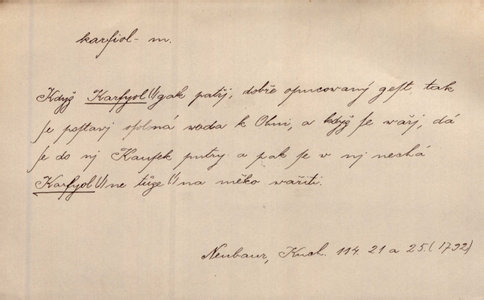 karfiol - m.
Když Karfyol (!) gak patřj, dobře opucovaný gest tak
se postavj splená woda k Ohni, a když se wařj, dá
se do nj Kausek putry a pak se v nj nechá
Karfyol (!) ne tůze (!) na měko wařiti.
Neubaur, Kuch. 114. 21 a 25. (1792)